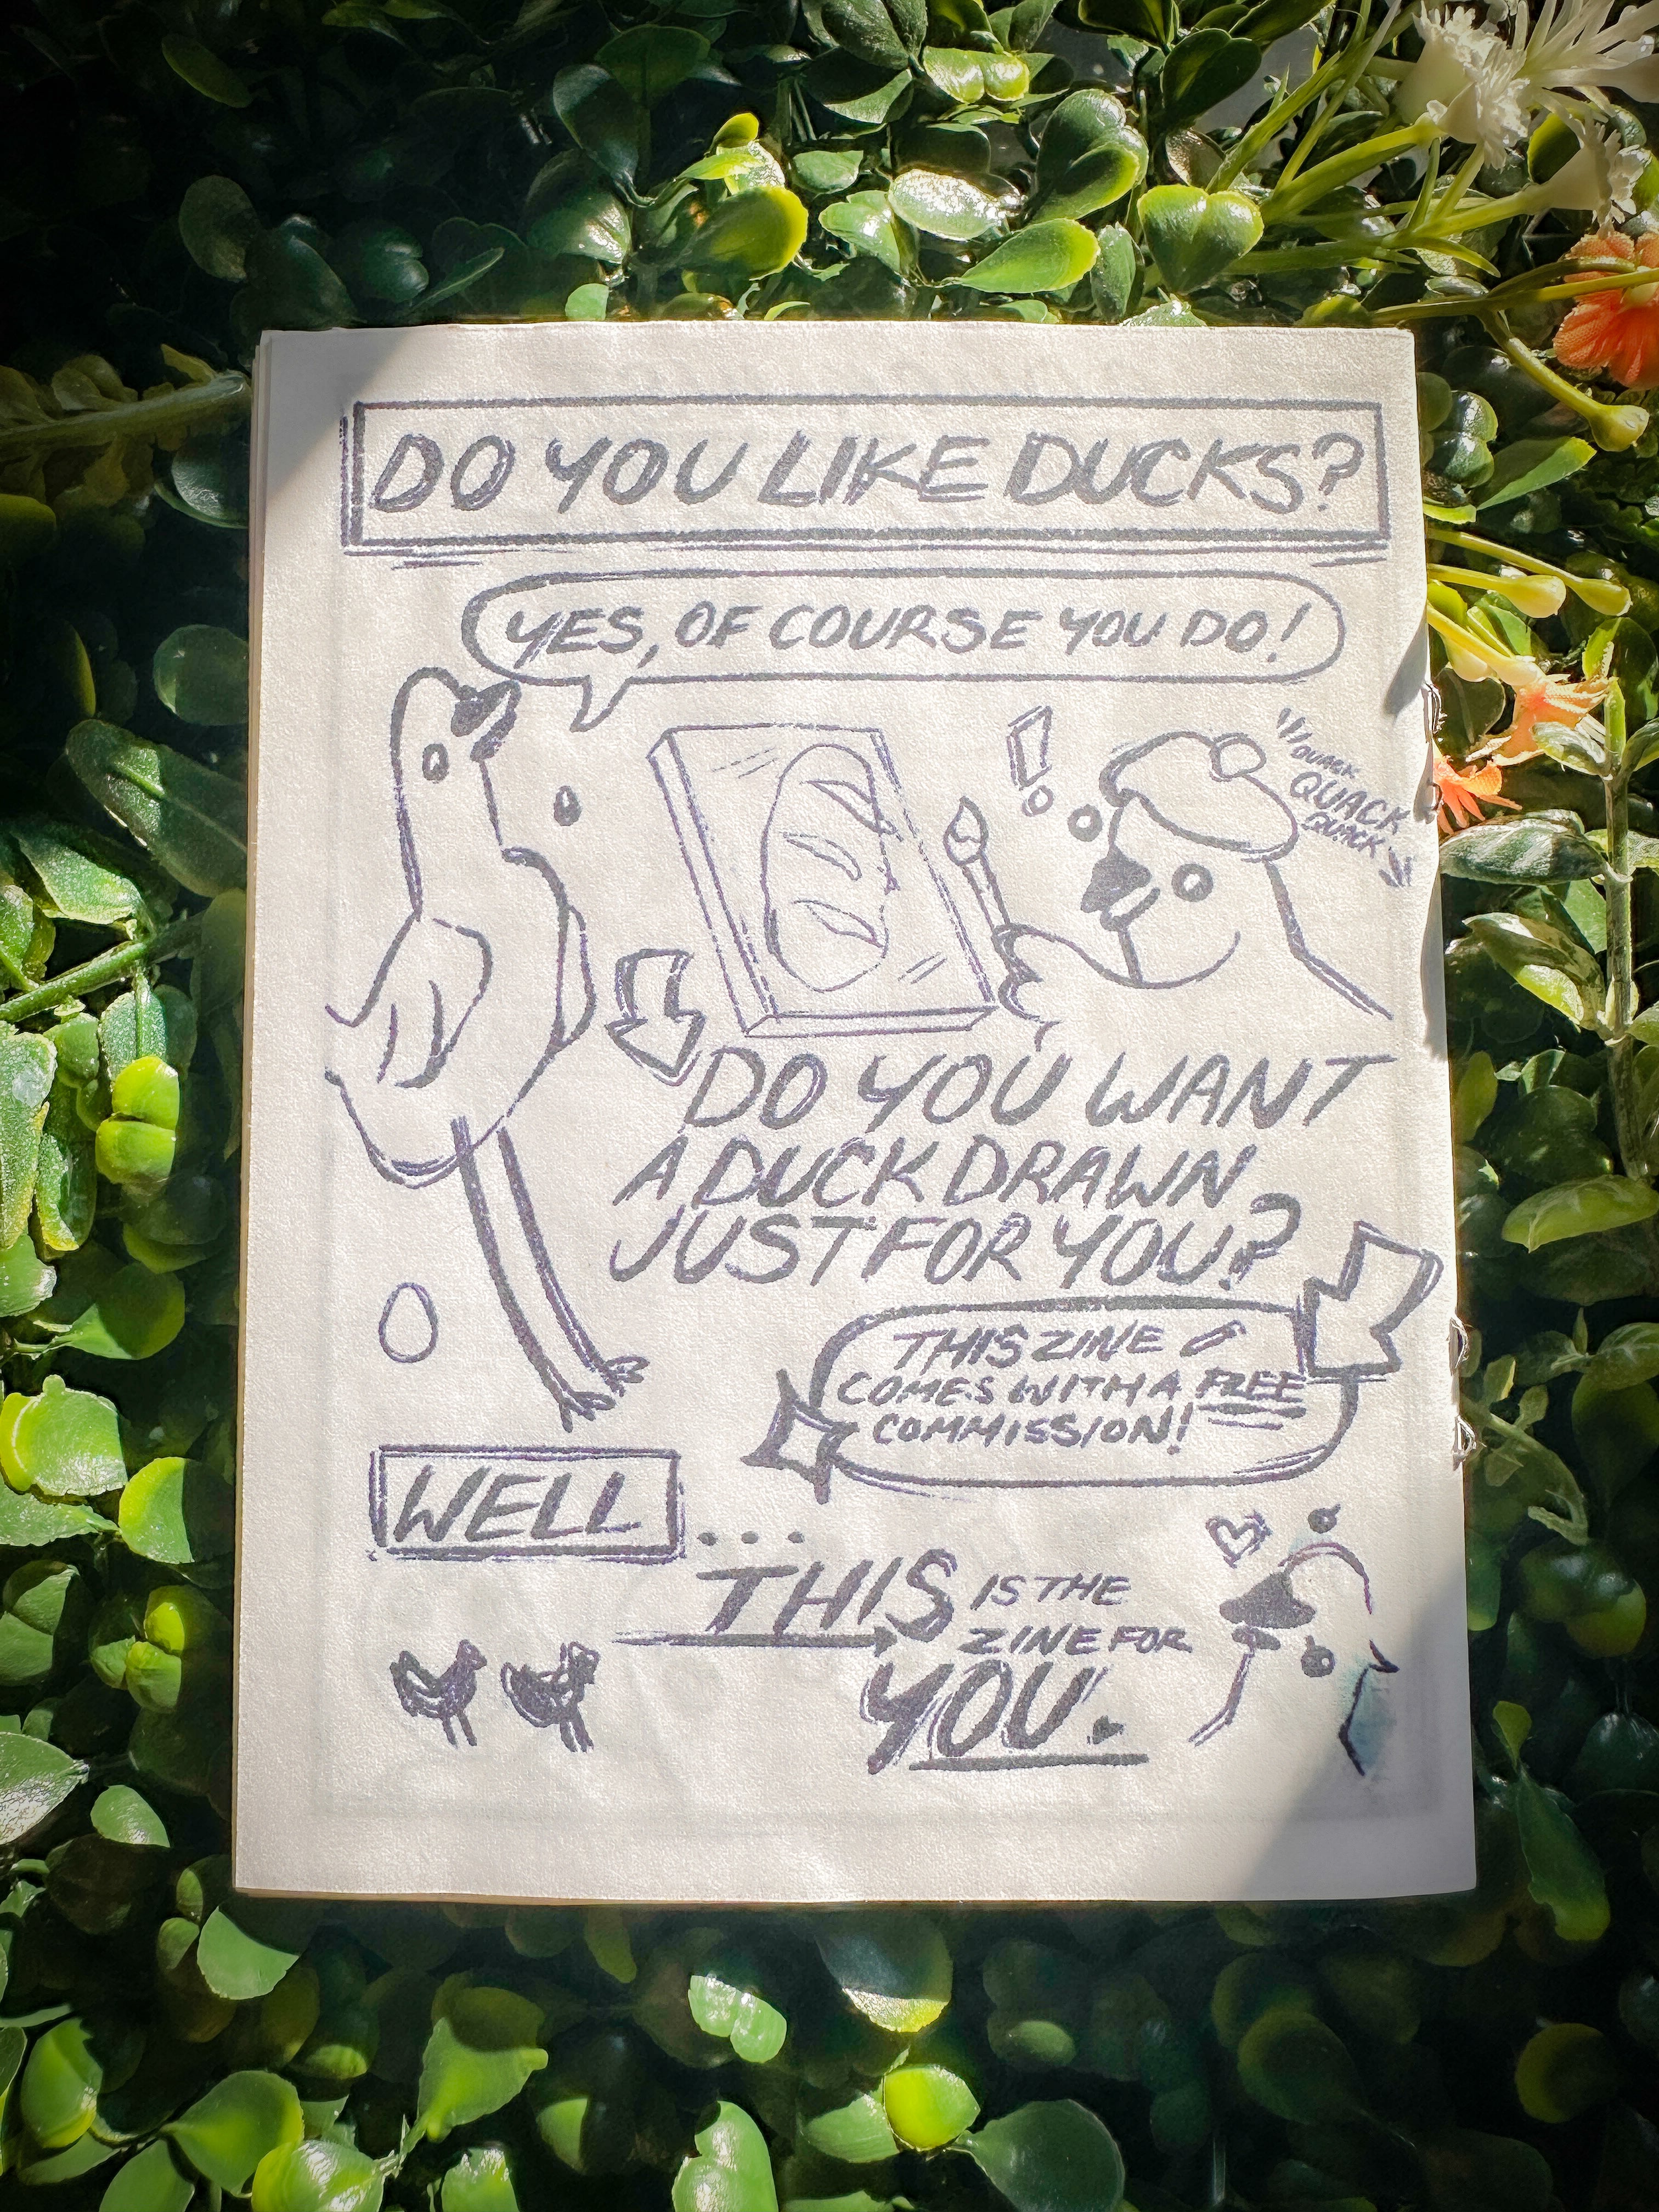 DO YOU LIKE DUCKS?
YES, OF COURSE YOU DO!
"QUACK
QUACK
QUACK"
DO YOU WANT
A DUCK DRAWN
JUST FOR YOU?
THIS ZINE
COMES WITH A FREE
COMMISSION!
WELL...
THIS IS THE
ZINE FOR
YOU.